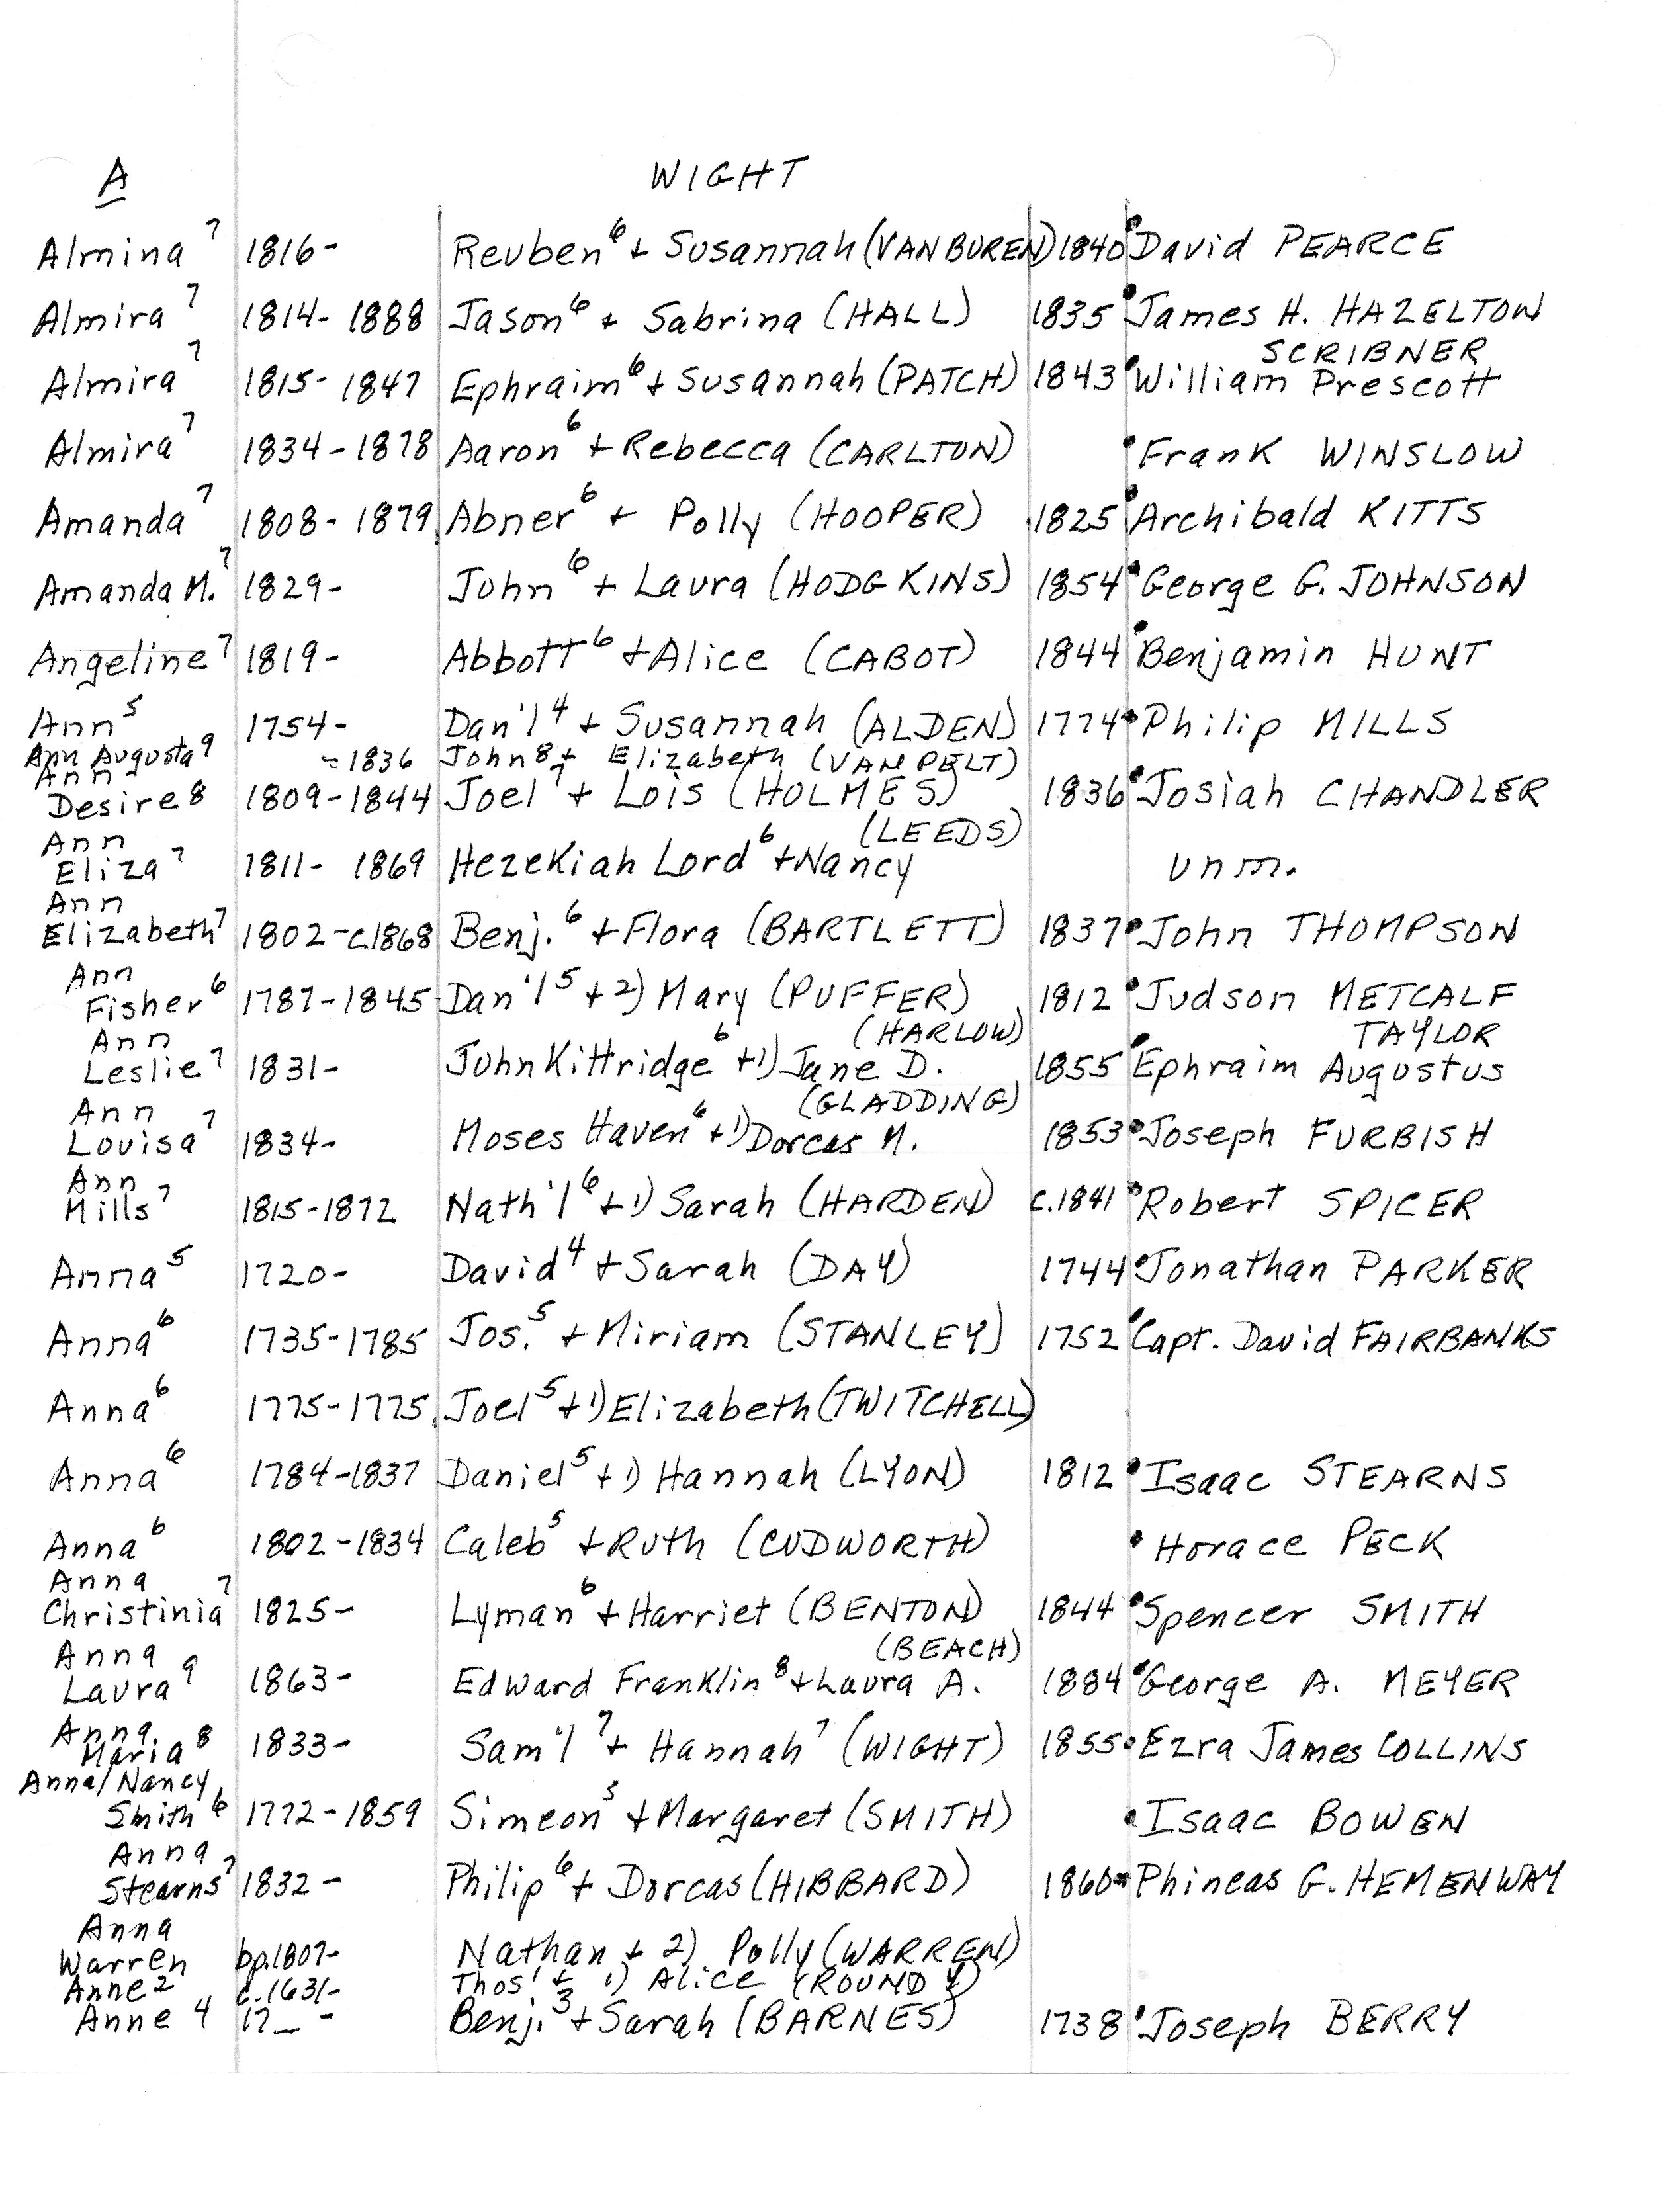 A WIGHT
Almina⁷ 1816- Reuben⁶ + Susannah (VAN BUREN) 1840 David PEARCE
Almira⁷ 1814-1888 Jason⁶ + Sabrina (HALL) 1835 James H. HAZELTON
SCRIBNER
Almira⁷ 1815-1847 Ephraim⁶ + Susannah (PATCH) 1843 William Prescott
Almira⁷ 1834-1878 Aaron⁶ + Rebecca (CARLTON) Frank WINSLOW
Amanda⁷ 1808-1879 Abner⁶ + Polly (HOOPER) 1825 Archibald KITTS
Amanda M.⁷ 1829- John⁶ + Laura (HODGKINS) 1854 George G. JOHNSON
Angeline⁷ 1819- Abbott⁶ + Alice (CABOT) 1844 Benjamin HUNT
Ann⁵ 1754- Dan'l⁴ + Susannah (ALDEN) 1774 Philip MILLS
Ann Augusta⁹ -1836 John⁸ + Elizabeth (VAN PELT)
Ann
Desire⁸ 1809-1844 Joel⁷ + Lois (HOLMES) 1836 Josiah CHANDLER
Ann (LEEDS)
Eliza⁷ 1811-1869 Hezekiah Lord⁶ + Nancy unm.
Ann
Elizabeth⁷ 1802-c1868 Benj.⁶ + Flora (BARTLETT) 1837 John THOMPSON
Ann
Fisher⁶ 1787-1845 Dan'l⁵ + 2) Mary (PUFFER) 1812 Judson METCALF
Ann (HARLOW) TAYLOR
Leslie⁷ 1831- John Kittridge⁶ + 1) Jane D. 1855 Ephraim Augustus
Ann (GLADDING)
Louisa⁷ 1834- Moses Haven⁶ + 1) Dorcas M. 1853 Joseph FURBISH
Ann
Mills⁷ 1815-1872 Nath'l⁶ + 1) Sarah (HARDEN) c.1841 Robert SPICER
Anna⁵ 1720- David⁴ + Sarah (DAY) 1744 Jonathan PARKER
Anna⁶ 1735-1785 Jos.⁵ + Miriam (STANLEY) 1752 Capt. David FAIRBANKS
Anna⁶ 1775-1775 Joel⁵ + 1) Elizabeth (TWITCHELL)
Anna⁶ 1784-1837 Daniel⁵ + 1) Hannah (LYON) 1812 Isaac STEARNS
Anna⁶ 1802-1834 Caleb⁵ + Ruth (CUDWORTH) Horace PECK
Anna
Christinia⁷ 1825- Lyman⁶ + Harriet (BENTON) 1844 Spencer SMITH
Anna (BEACH)
Laura⁹ 1863- Edward Franklin⁸ + Laura A. 1884 George A. MEYER
Anna
Maria⁸ 1833- Sam'l⁷ + Hannah⁷ (WIGHT) 1855 Ezra James COLLINS
Anna/Nancy
Smith⁶ 1772-1859 Simeon⁵ + Margaret (SMITH) Isaac BOWEN
Anna
Stearns⁷ 1832- Philip⁶ + Dorcas (HIBBARD) 1860 Phineas G. HEMENWAY
Anna
Warren bp.1807- Nathan + 2) Polly (WARREN)
Anne² c.1631- Thos¹ + 1) Alice (ROUNDY)
Anne⁴ 17__ - Benj.³ + Sarah (BARNES) 1738 Joseph BERRY